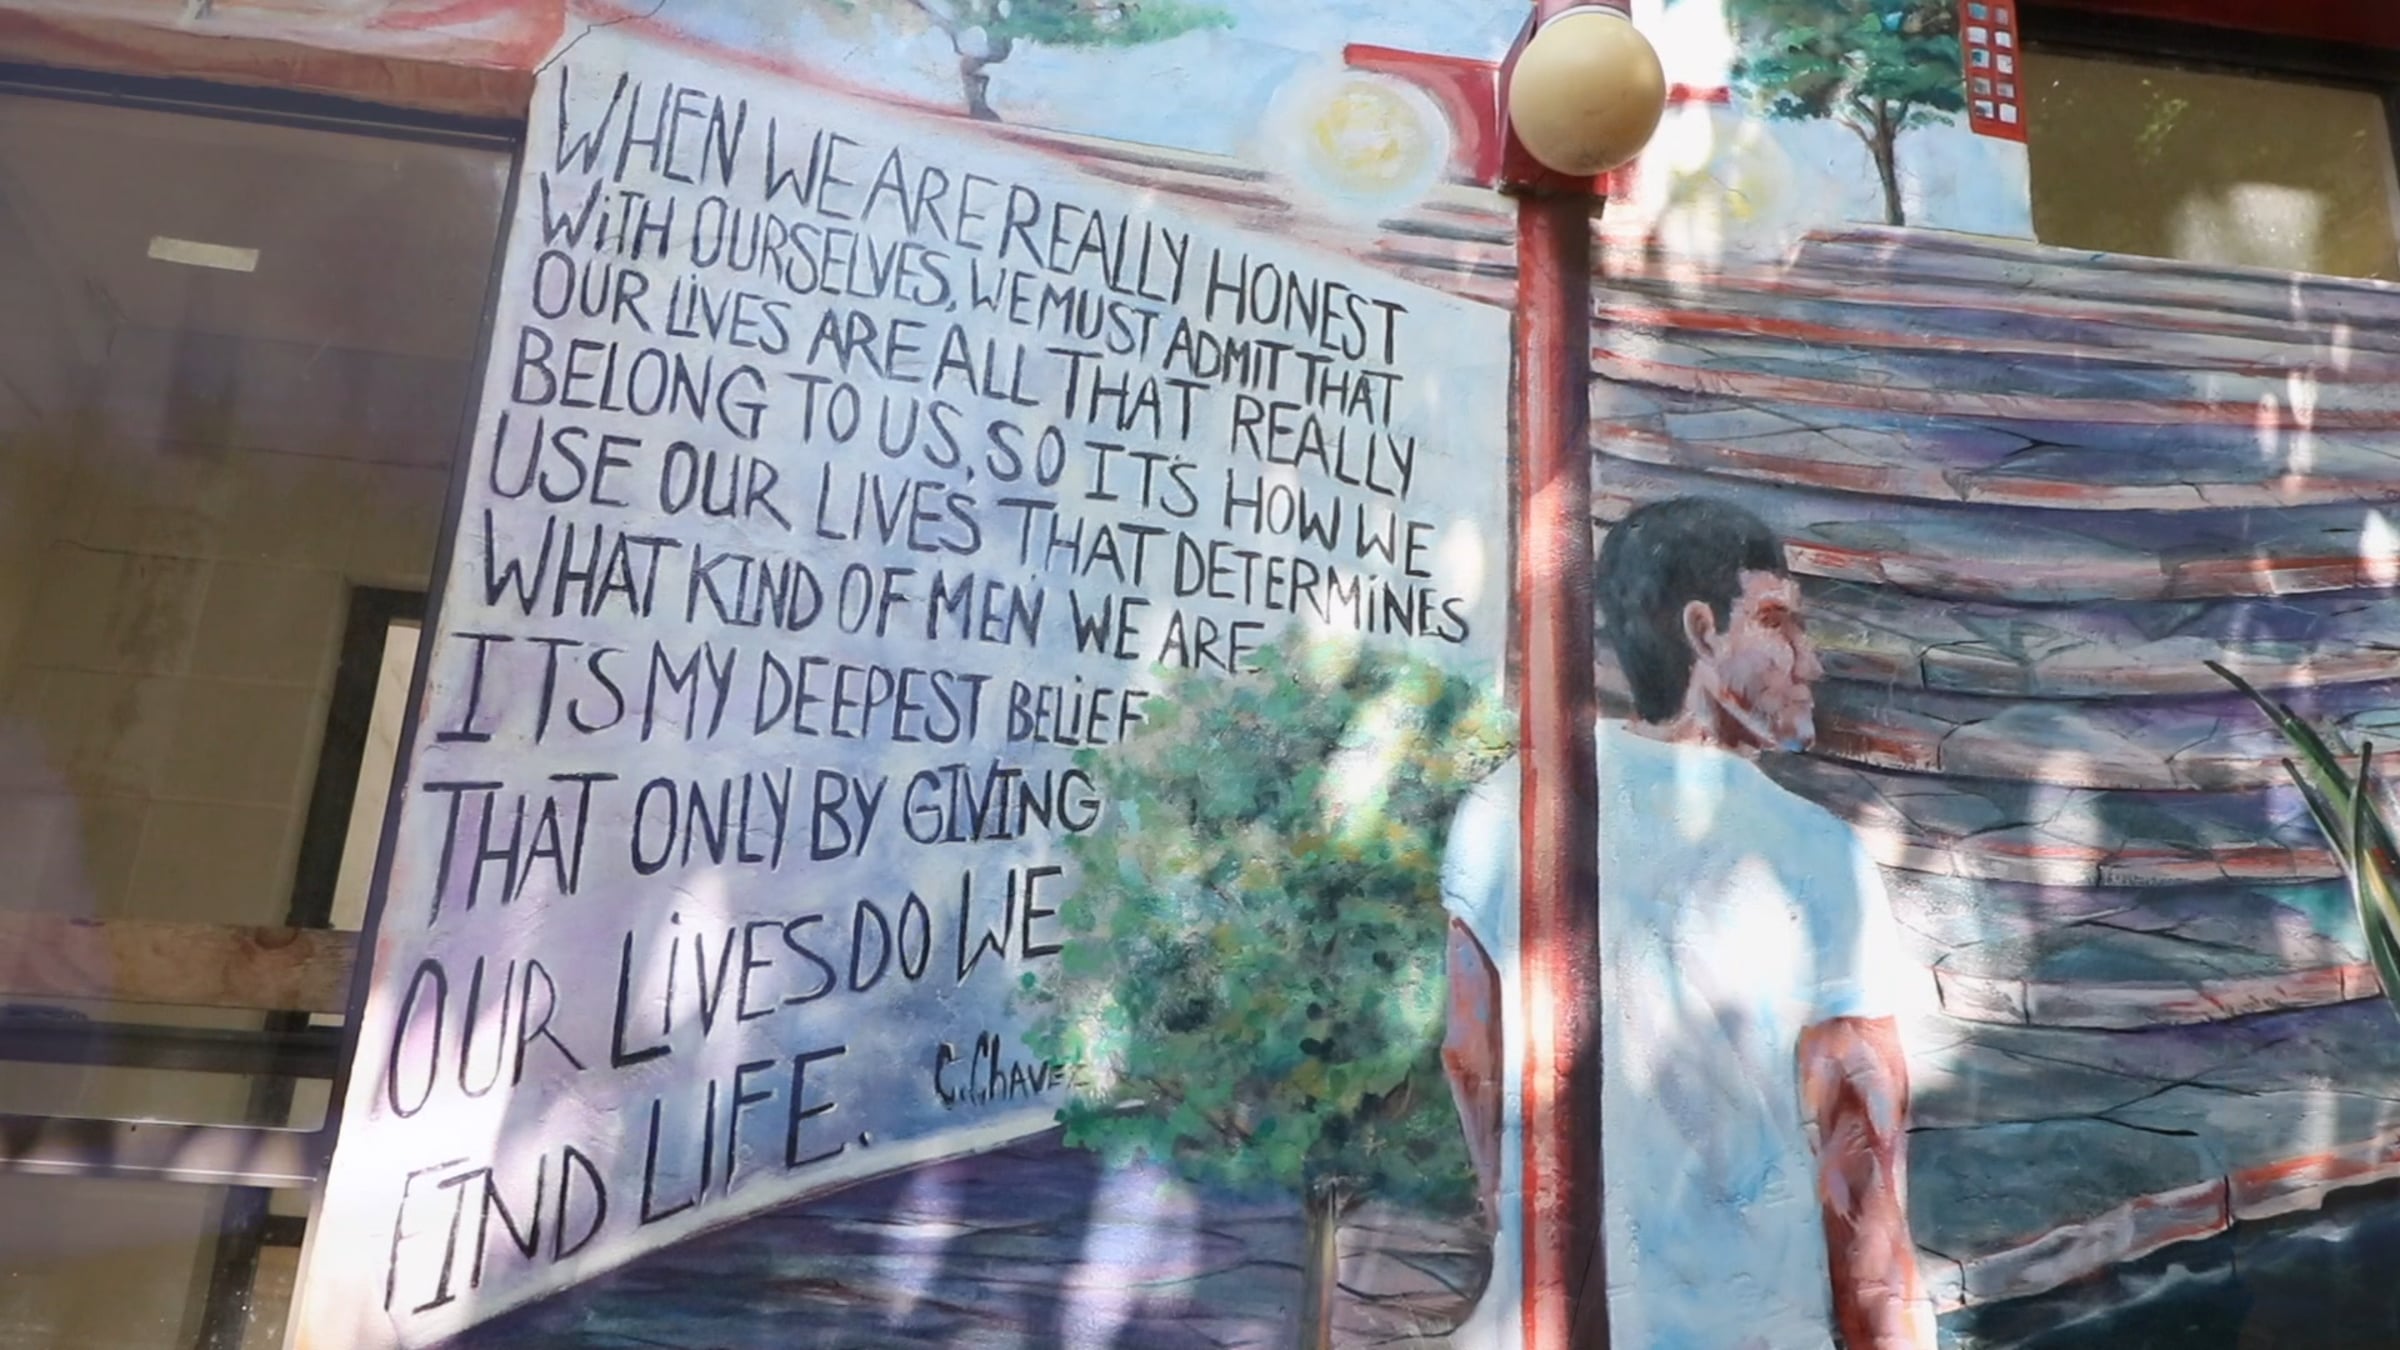 WHEN WE ARE REALLY HONEST
WiTH OURSELVES, WE MUST ADMIT THAT
OUR LiVES ARE ALL THAT REALLY
BELONG TO US, SO IT'S HOW WE
USE OUR LIVES THAT DETERMiNES
WHAT KIND OF MEN WE ARE
IT'S MY DEEPEST BELiEF
THAT ONLY BY GIVING
OUR LiVES DO WE
FIND LIFE.
C. Chavez